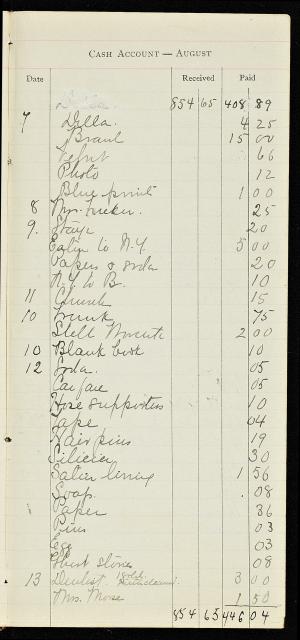 CASH ACCOUNT — AUGUST
Date Received Paid
854 65 408 89
7 Della. 4 25
J Braul 15 00
66
Photo 12
Blue prints 1 00
8 Mrs. Tucker. 25
9. Stays 20
to N.Y 5 00
Papers & soda 20
N.Y. to B. 10
11 Church 15
10 Trunk 75
2 00
10 Blank book 10
12 Soda. 05
Carfare 05
Hose supporters 10
Tape 04
Hair pins 19
Silicien 30
Satin lining 1 56
Soap. .08
Paper 36
Pins 03
Egg 03
Short stories 08
13 Dentist 3 00
Mrs. Morse 1 50
854 65 446 04